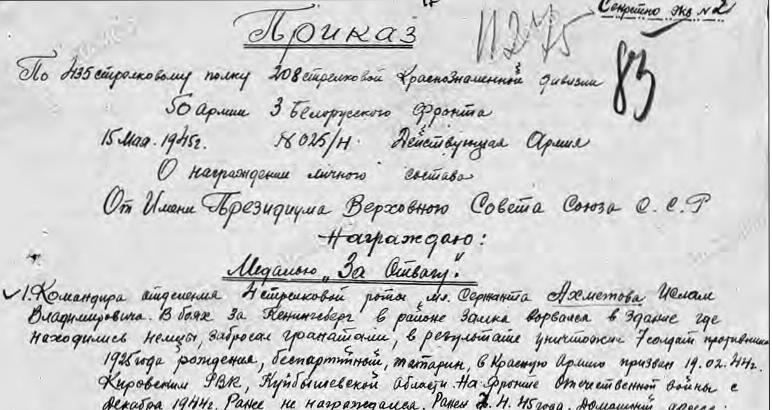 Секретно Экз №2
Приказ
83
По 435 стрелковому полку 208 стрелковой Краснознаменной дивизии
50 армии 3 Белорусского Фронта
15 Мая. 1945г. № 025/н. Действующая Армия
О награждении личного состава
От Имени Президиума Верховного Совета Союза С.С.Р
Награждаю:
Медалью „За Отвагу".
1. Командира отделения 4 стрелковой роты мл. Сержанта Ахметова Ислам
Владимировича. В боях за Кенингсберг в районе замка ворвался в здание где
находились немцы, забросал гранатами, в результате уничтожил 7 солдат противника
1925 года рождения, беспартийный, татарин, в Красную Армию призван 19.02.44г.
Кировским РВК, Куйбышевской области. На Фронте Отечественной войны с
декабря 1944г. Ранее не награждался. Ранен 4.45 года. Домашний адрес: